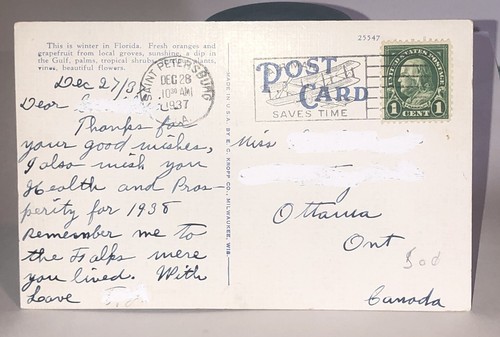 This is winter in Florida. Fresh oranges and
grapefruit from local groves, sunshine, a dip in
the Gulf, palms, tropical shrubs, plants,
vines, beautiful flowers.
Dec 27/37
Dear
Thanks for
your good wishes,
I also wish you
Health and Pros-
perity for 1938
remember me to
the Folks were
you lived. With
Love
SAINT PETERSBURG
DEC 28
10 30 AM
1937
FLA.
MADE IN U.S.A. BY E. C. KROPP CO., MILWAUKEE, WIS.
25547
POST
CARD
SAVES TIME
UNITED STATES POSTAGE
1 CENT 1
Miss
Ottawa
Ont
Canada